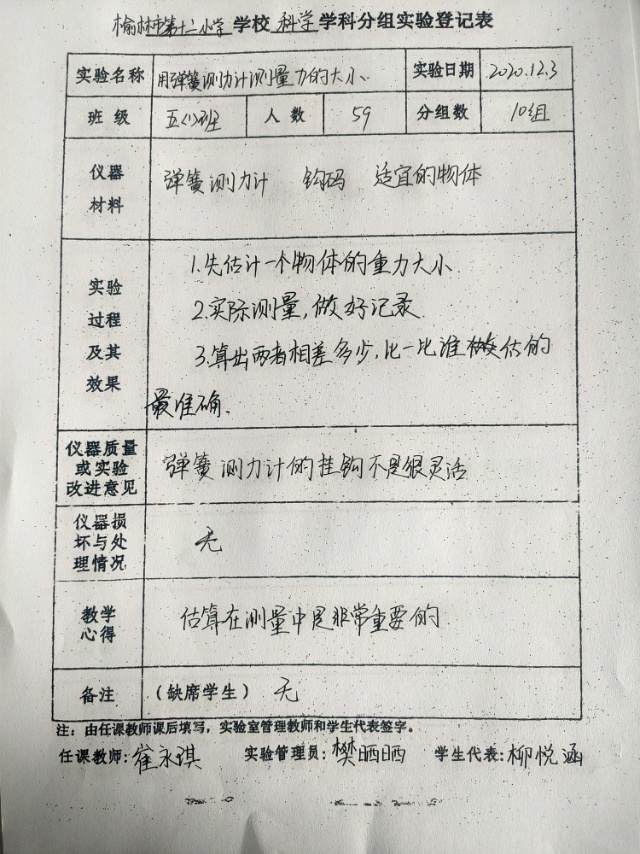 榆林市第十二小学学校 科学学科分组实验登记表
实验名称 用弹簧测力计测量力的大小、 实验日期 2020.12.3
班级 五(1)班 人数 59 分组数 10组
仪器材料 弹簧测力计 钩码 适宜的物体
实验
过程
及其
效果
1.先估计一个物体的重力大小
2.实际测量,做好记录.
3.算出两者相差多少,比一比谁估的
最准确.
仪器质量
或实验
改进意见
弹簧测力计的挂钩不是很灵活
仪器损
坏与处
理情况
无
教学
心得
估算在测量中是非常重要的
备注 (缺席学生) 无
注:由任课教师课后填写,实验室管理教师和学生代表签字。
任课教师:崔永琪 实验管理员:樊晒晒 学生代表:柳悦涵